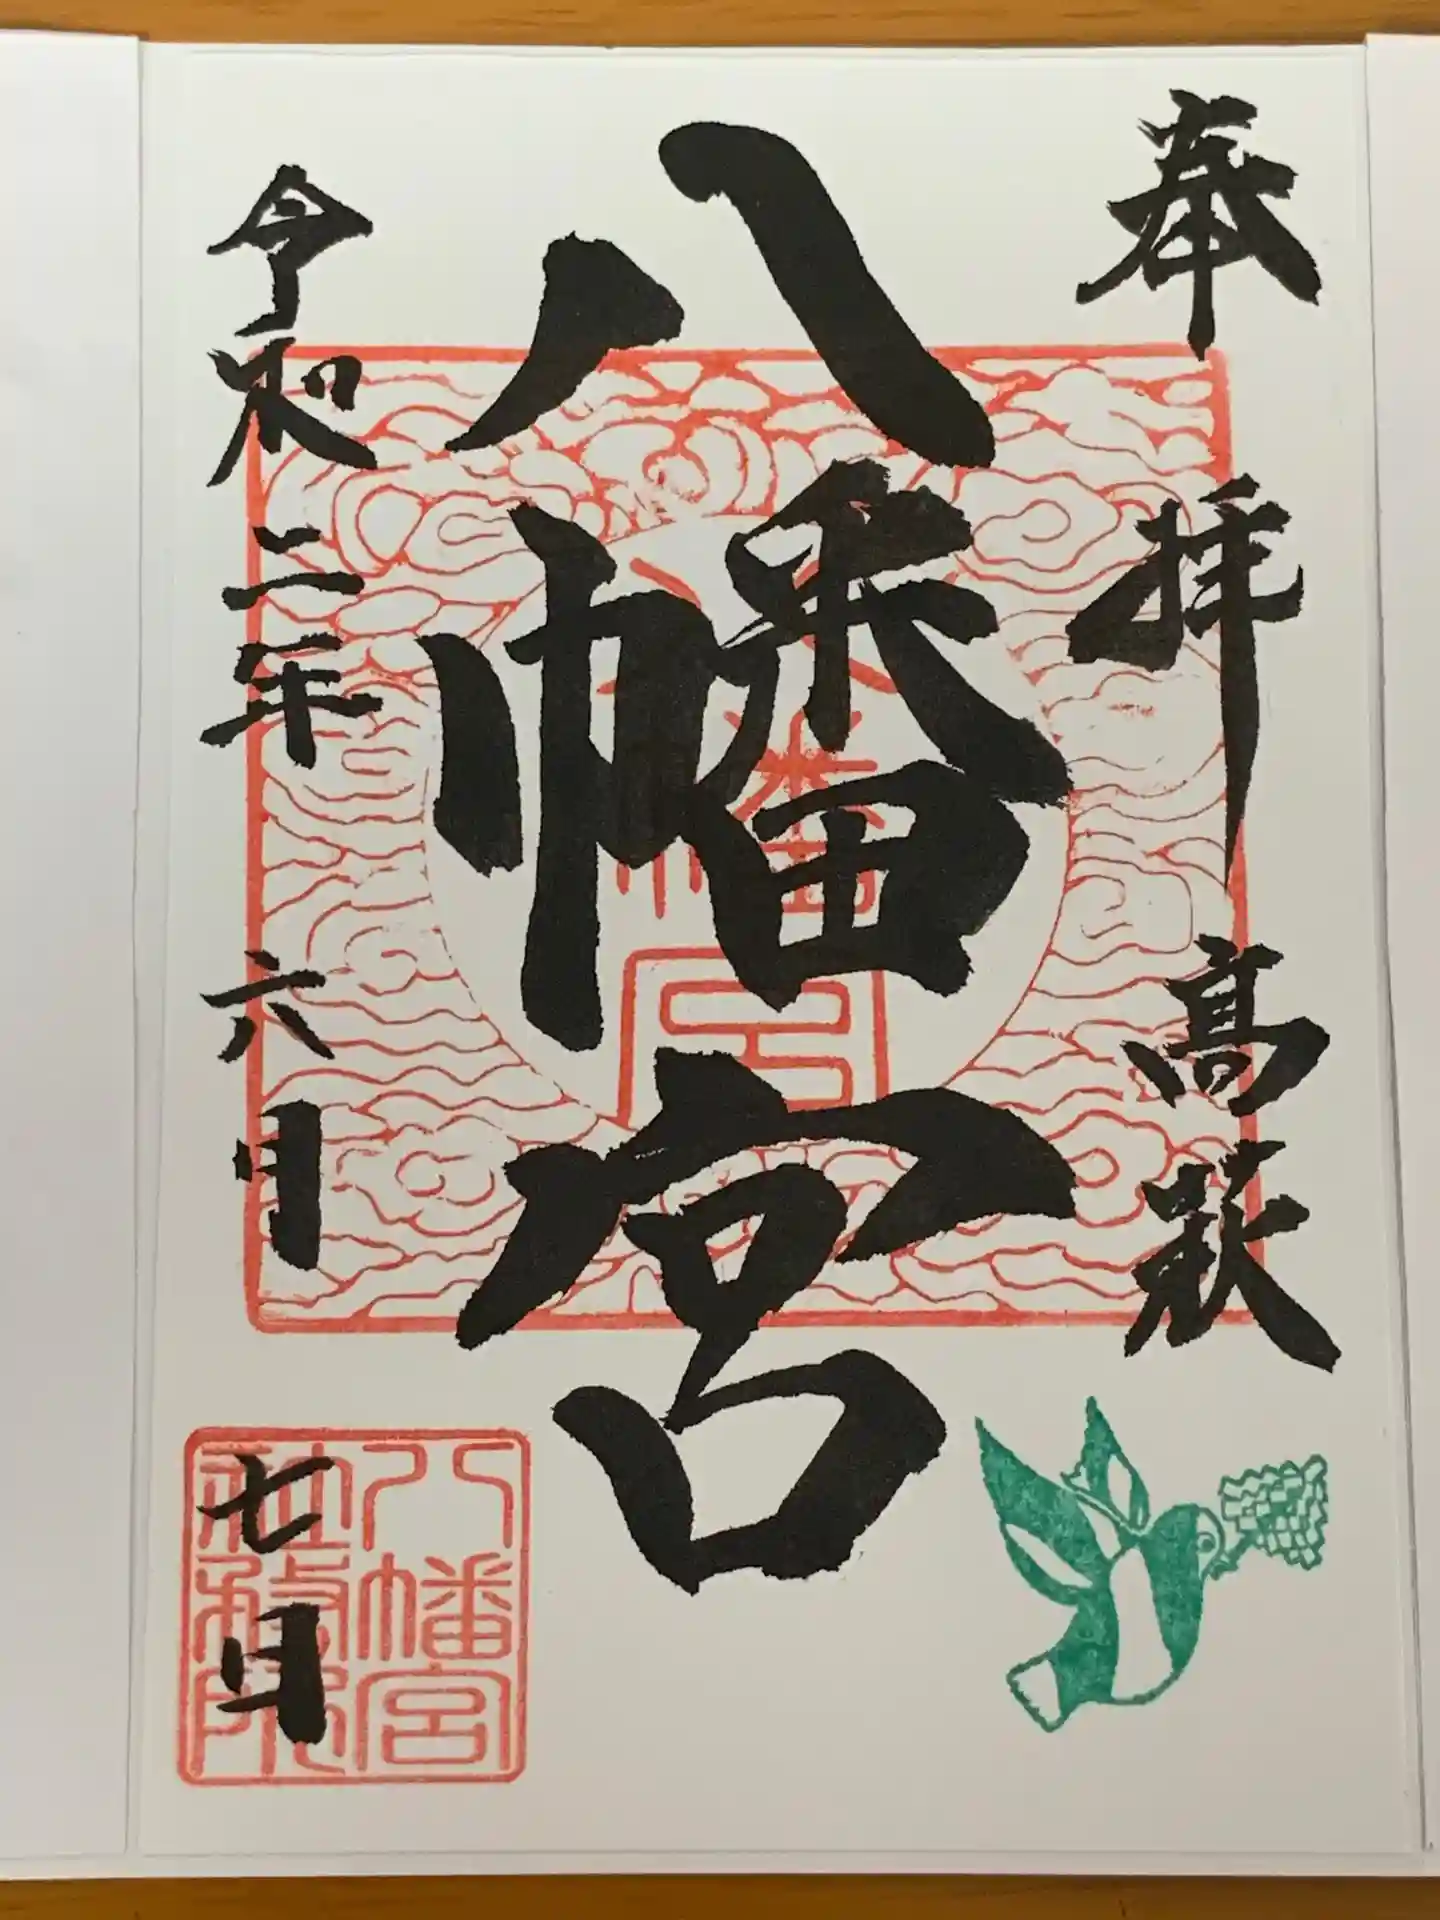 奉拝 高萩
八幡宮
令和二年六月七日
八幡宮
八幡宮
社務所